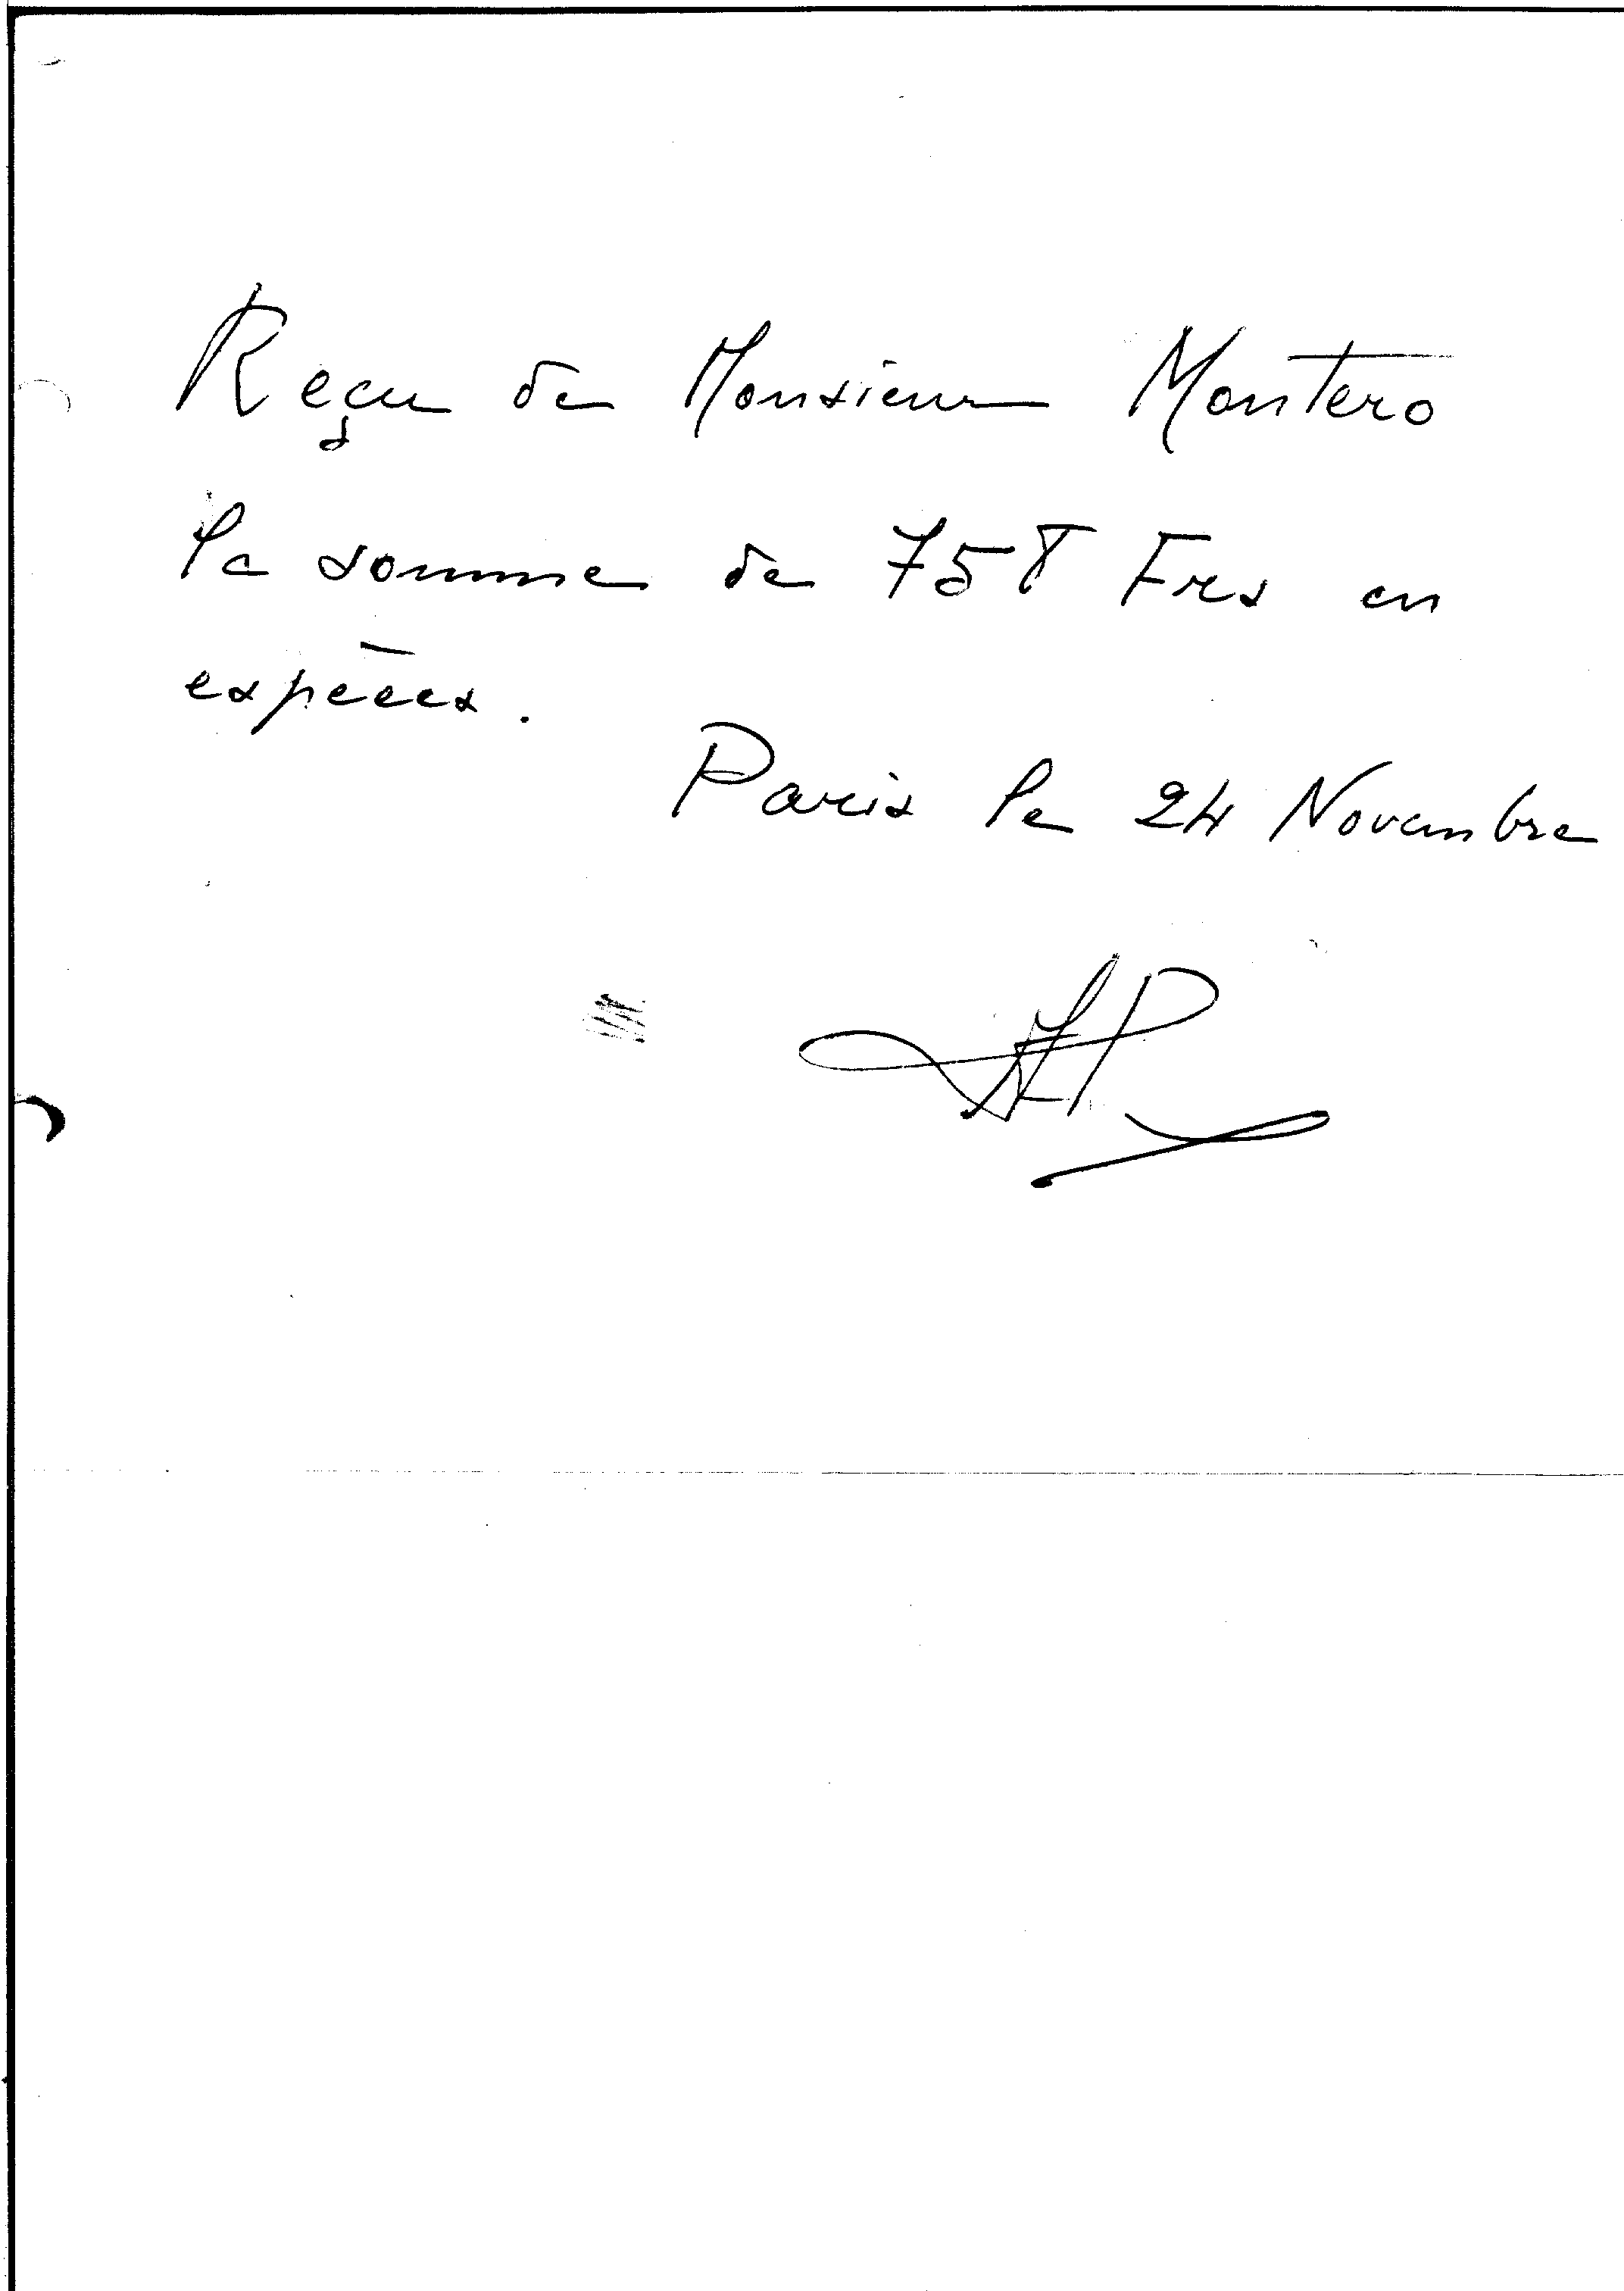 Reçu de Monsieur Montero
la somme de 758 Frs en
espèces.
Paris le 24 Novembre